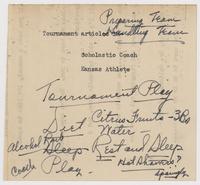 Preparing Team
Tournament articles Handling Team
Scholastic Coach
Kansas Athlete
Tournament Play
Diet Citrus Fruits - 3 Da
Water
Alcohol Rub Sleep Rest and Sleep
Coach Play - Hot Showers?
sparingly